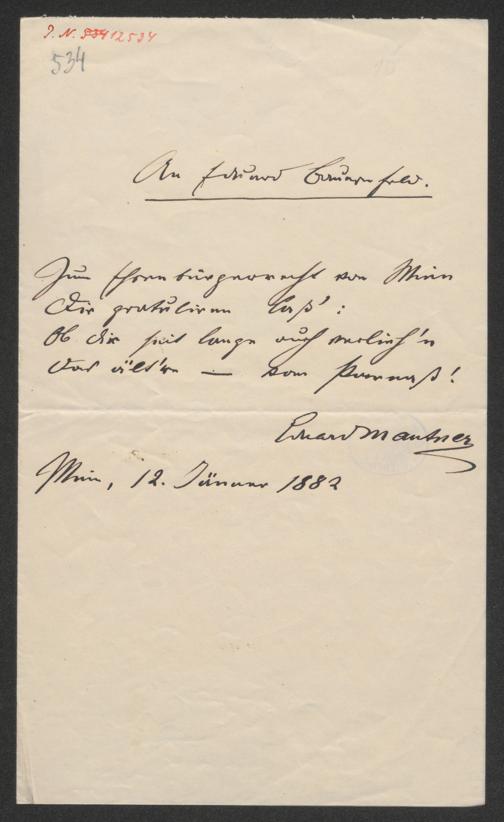 I. N. 12534
534
An Eduard Bauernfeld.
Zum Ehrenbürgerrecht von Wien
Dir gratuliren laß':
Ob dir seit lange auch verlieh'n
Das ält're — vom Parnaß!
Eduard Mautner
Wien, 12. Jänner 1882